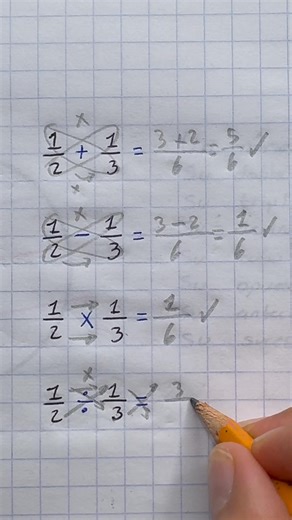 1/2 + 1/3 = 3+2/6 = 5/6 ✓
1/2 − 1/3 = 3−2/6 = 1/6 ✓
1/2 × 1/3 = 1/6 ✓
1/2 ÷ 1/3 = 3